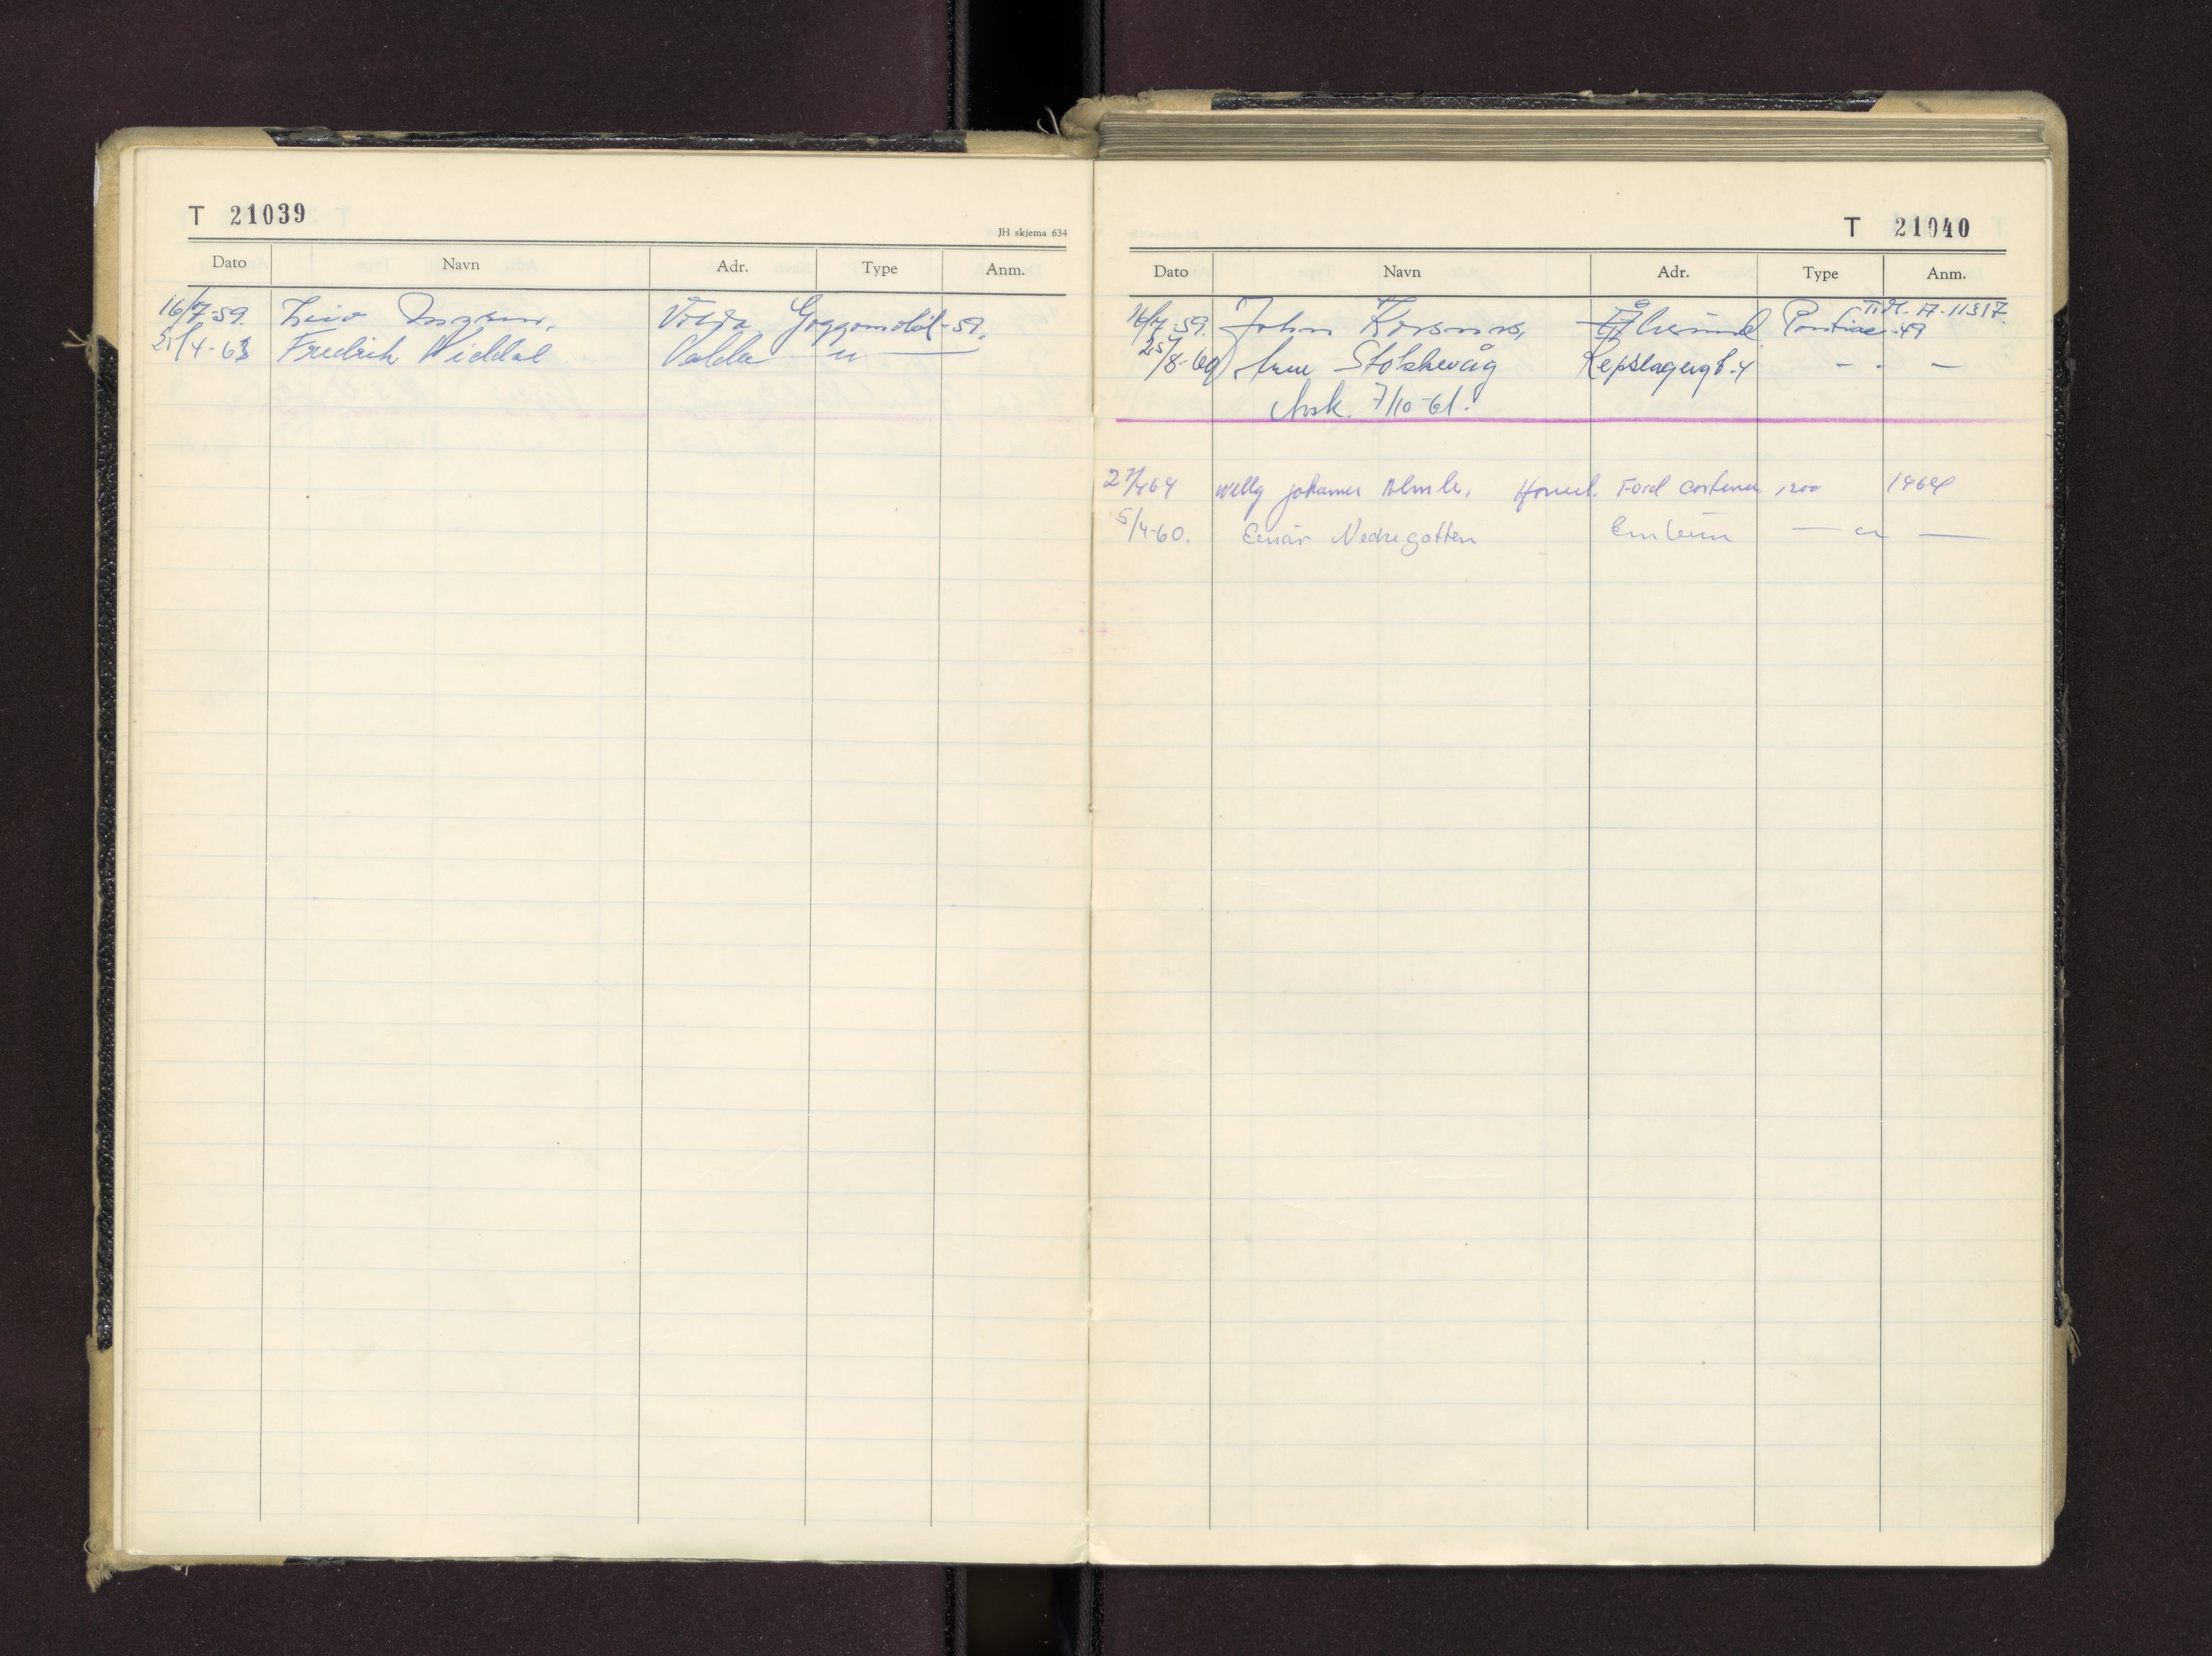 T 21039
JH skjema 634
Dato Navn Adr. Type Anm.
16/7-59. Volda Goggomobil-59.
4-63 Fredrik Widdal Volda — " —
T 21040
Dato Navn Adr. Type Anm.
Tidl. A-11317.
16/7-59. John Korsnes, Ålesund Pontiac-49
25/8-60 Arne Stokkevåg Repslagergt. 4 - . -
Avsk. 7/10-61.
27/4 64 Willy Johannes Ford Cortina 1200 1964
5/4-60. Einar Nedregotten Emblem — " —